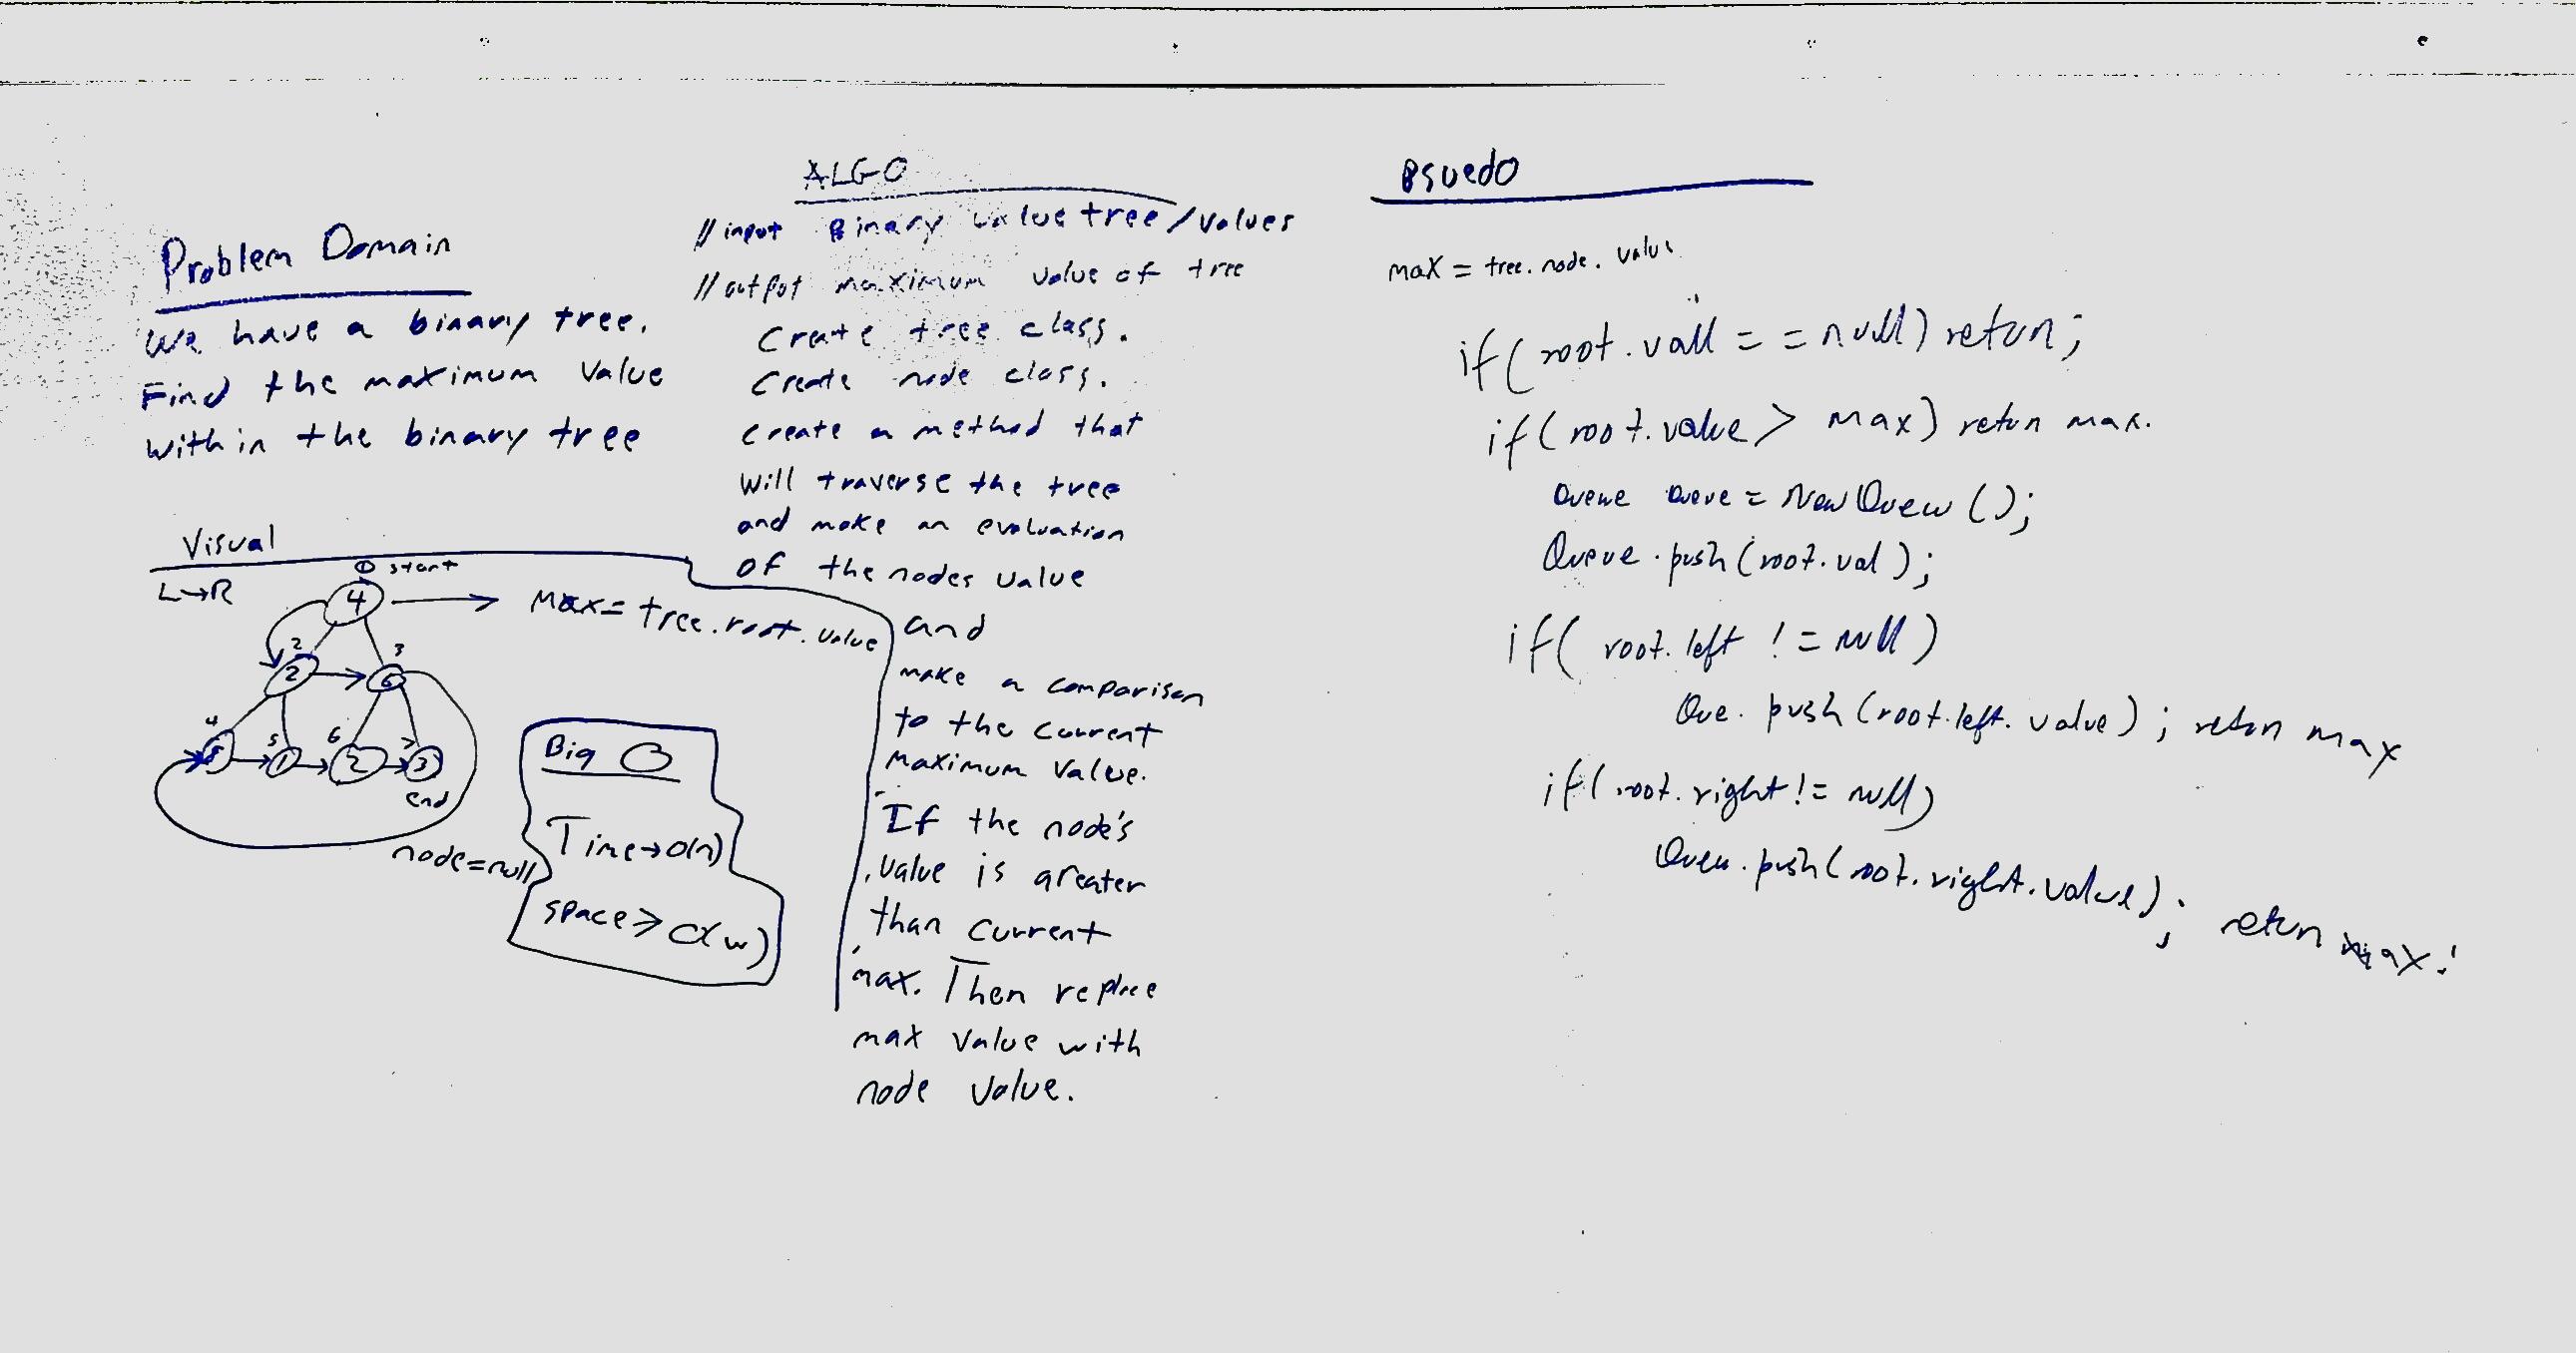 Problem Domain
We have a binary tree.
Find the maximum value
within the binary tree
Visual
L→R
① start
4
Max = tree.root.value
2 3
2 6
4 5 6 7
1 2 3
end
node=null
Big O
Time→O(n)
space→O(w)
ALGO
// input Binary value tree/values
// output maximum value of tree
Create tree class.
Create node class.
create a method that
will traverse the tree
and make an evaluation
of the nodes value
and
make a comparison
to the current
maximum value.
If the node's
value is greater
than current
max. Then replace
max value with
node value.
Psuedo
max = tree.node.value
if(root.vall == null) return;
if(root.value > max) return max.
Queue Queue = New Queue();
Queue.push(root.val);
if( root.left != null)
Que.push(root.left.value); return max
if(root.right != null)
Queu.push(root.right.value); return max;